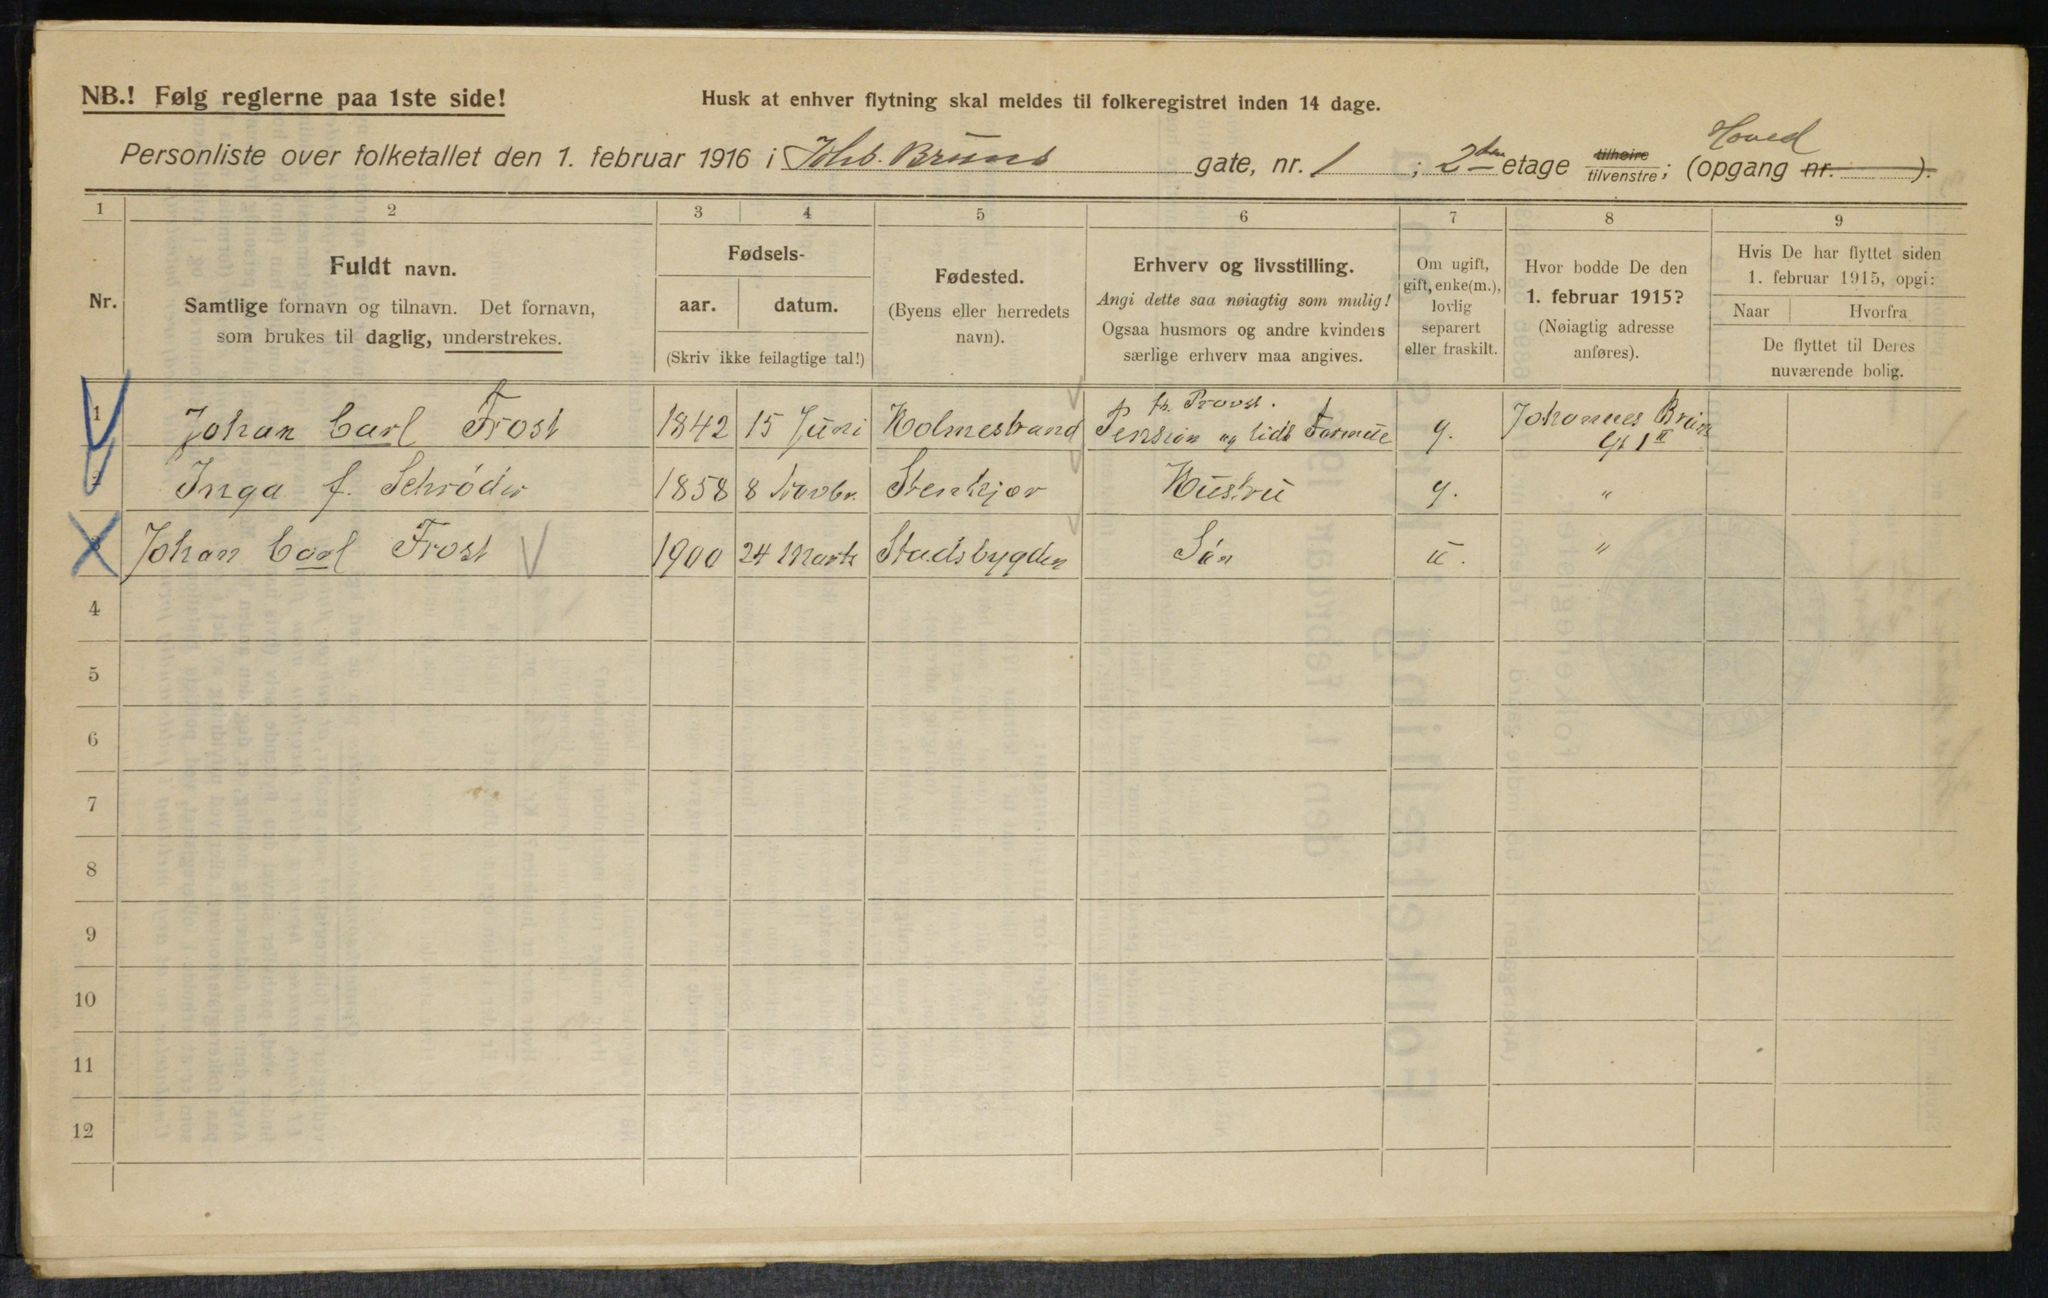 NB.! Følg reglerne paa 1ste side!
Husk at enhver flytning skal meldes til folkeregistret inden 14 dage.
Hoved
Personliste over folketallet den 1. februar 1916 i Johs. Bruns gate, nr. 1 ; 2den etage tilhøire tilvenstre; (opgang nr. ).
1 2 3 4 5 6 7 8 9
Nr.
Fuldt navn.
Samtlige fornavn og tilnavn. Det fornavn,
som brukes til daglig, understrekes.
Fødsels-
aar. datum.
(Skriv ikke feilagtige tal!)
Fødested.
(Byens eller herredets
navn).
Erhverv og livsstilling.
Angi dette saa nøiagtig som mulig!
Ogsaa husmors og andre kvinders
særlige erhverv maa angives.
Om ugift,
gift, enke(m.),
lovlig
separert
eller fraskilt.
Hvor bodde De den
1. februar 1915?
(Nøiagtig adresse
anføres).
Hvis De har flyttet siden
1. februar 1915, opgi:
Naar Hvorfra
De flyttet til Deres
nuværende bolig.
1 Johan Carl Frost 1842 15 Juni Holmestrand fh. Provst. Pension og lidt Formue g. Johannes Bruns Gt 1 II
2 Inga f. Schrøder 1858 8 Novbr. Stenkjær Hustru g. "
3 Johan Carl Frost 1900 24 Marts Stadsbygden Søn u. "
4
5
6
7
8
9
10
11
12